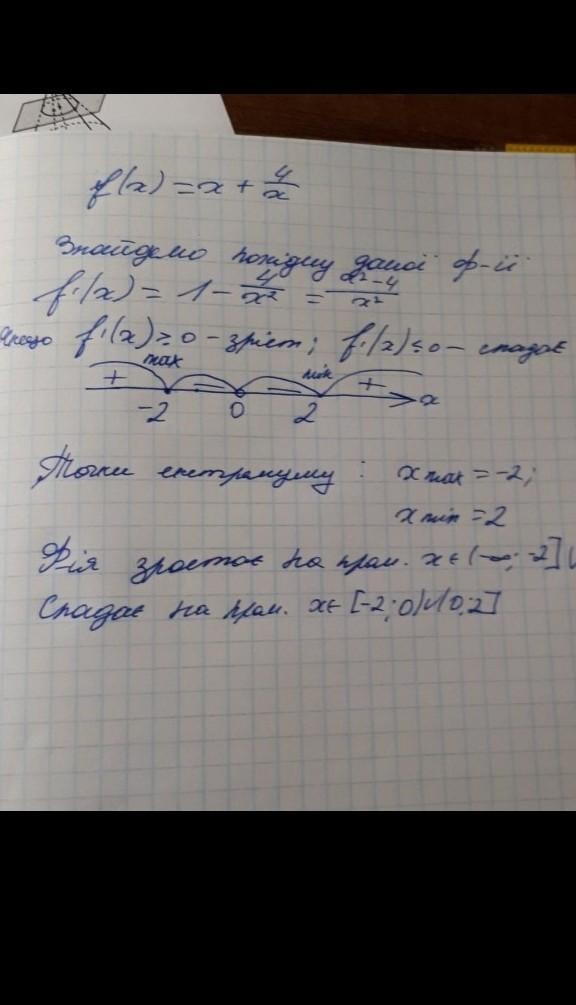 f(x) = x + 4/x
Знайдемо похідну даної ф-ії
f'(x) = 1 - 4/x² = x²-4/x²
Якщо f'(x) ≥ 0 - зріст; f'(x) ≤ 0 - спадає
+ max - - min + x
-2 0 2
Точки екстремуму : x max = -2;
x min = 2
Ф-ія зростає на пром. x ∈ (-∞; -2] ∪
Спадає на пром. x ∈ [-2; 0) ∪ (0; 2]